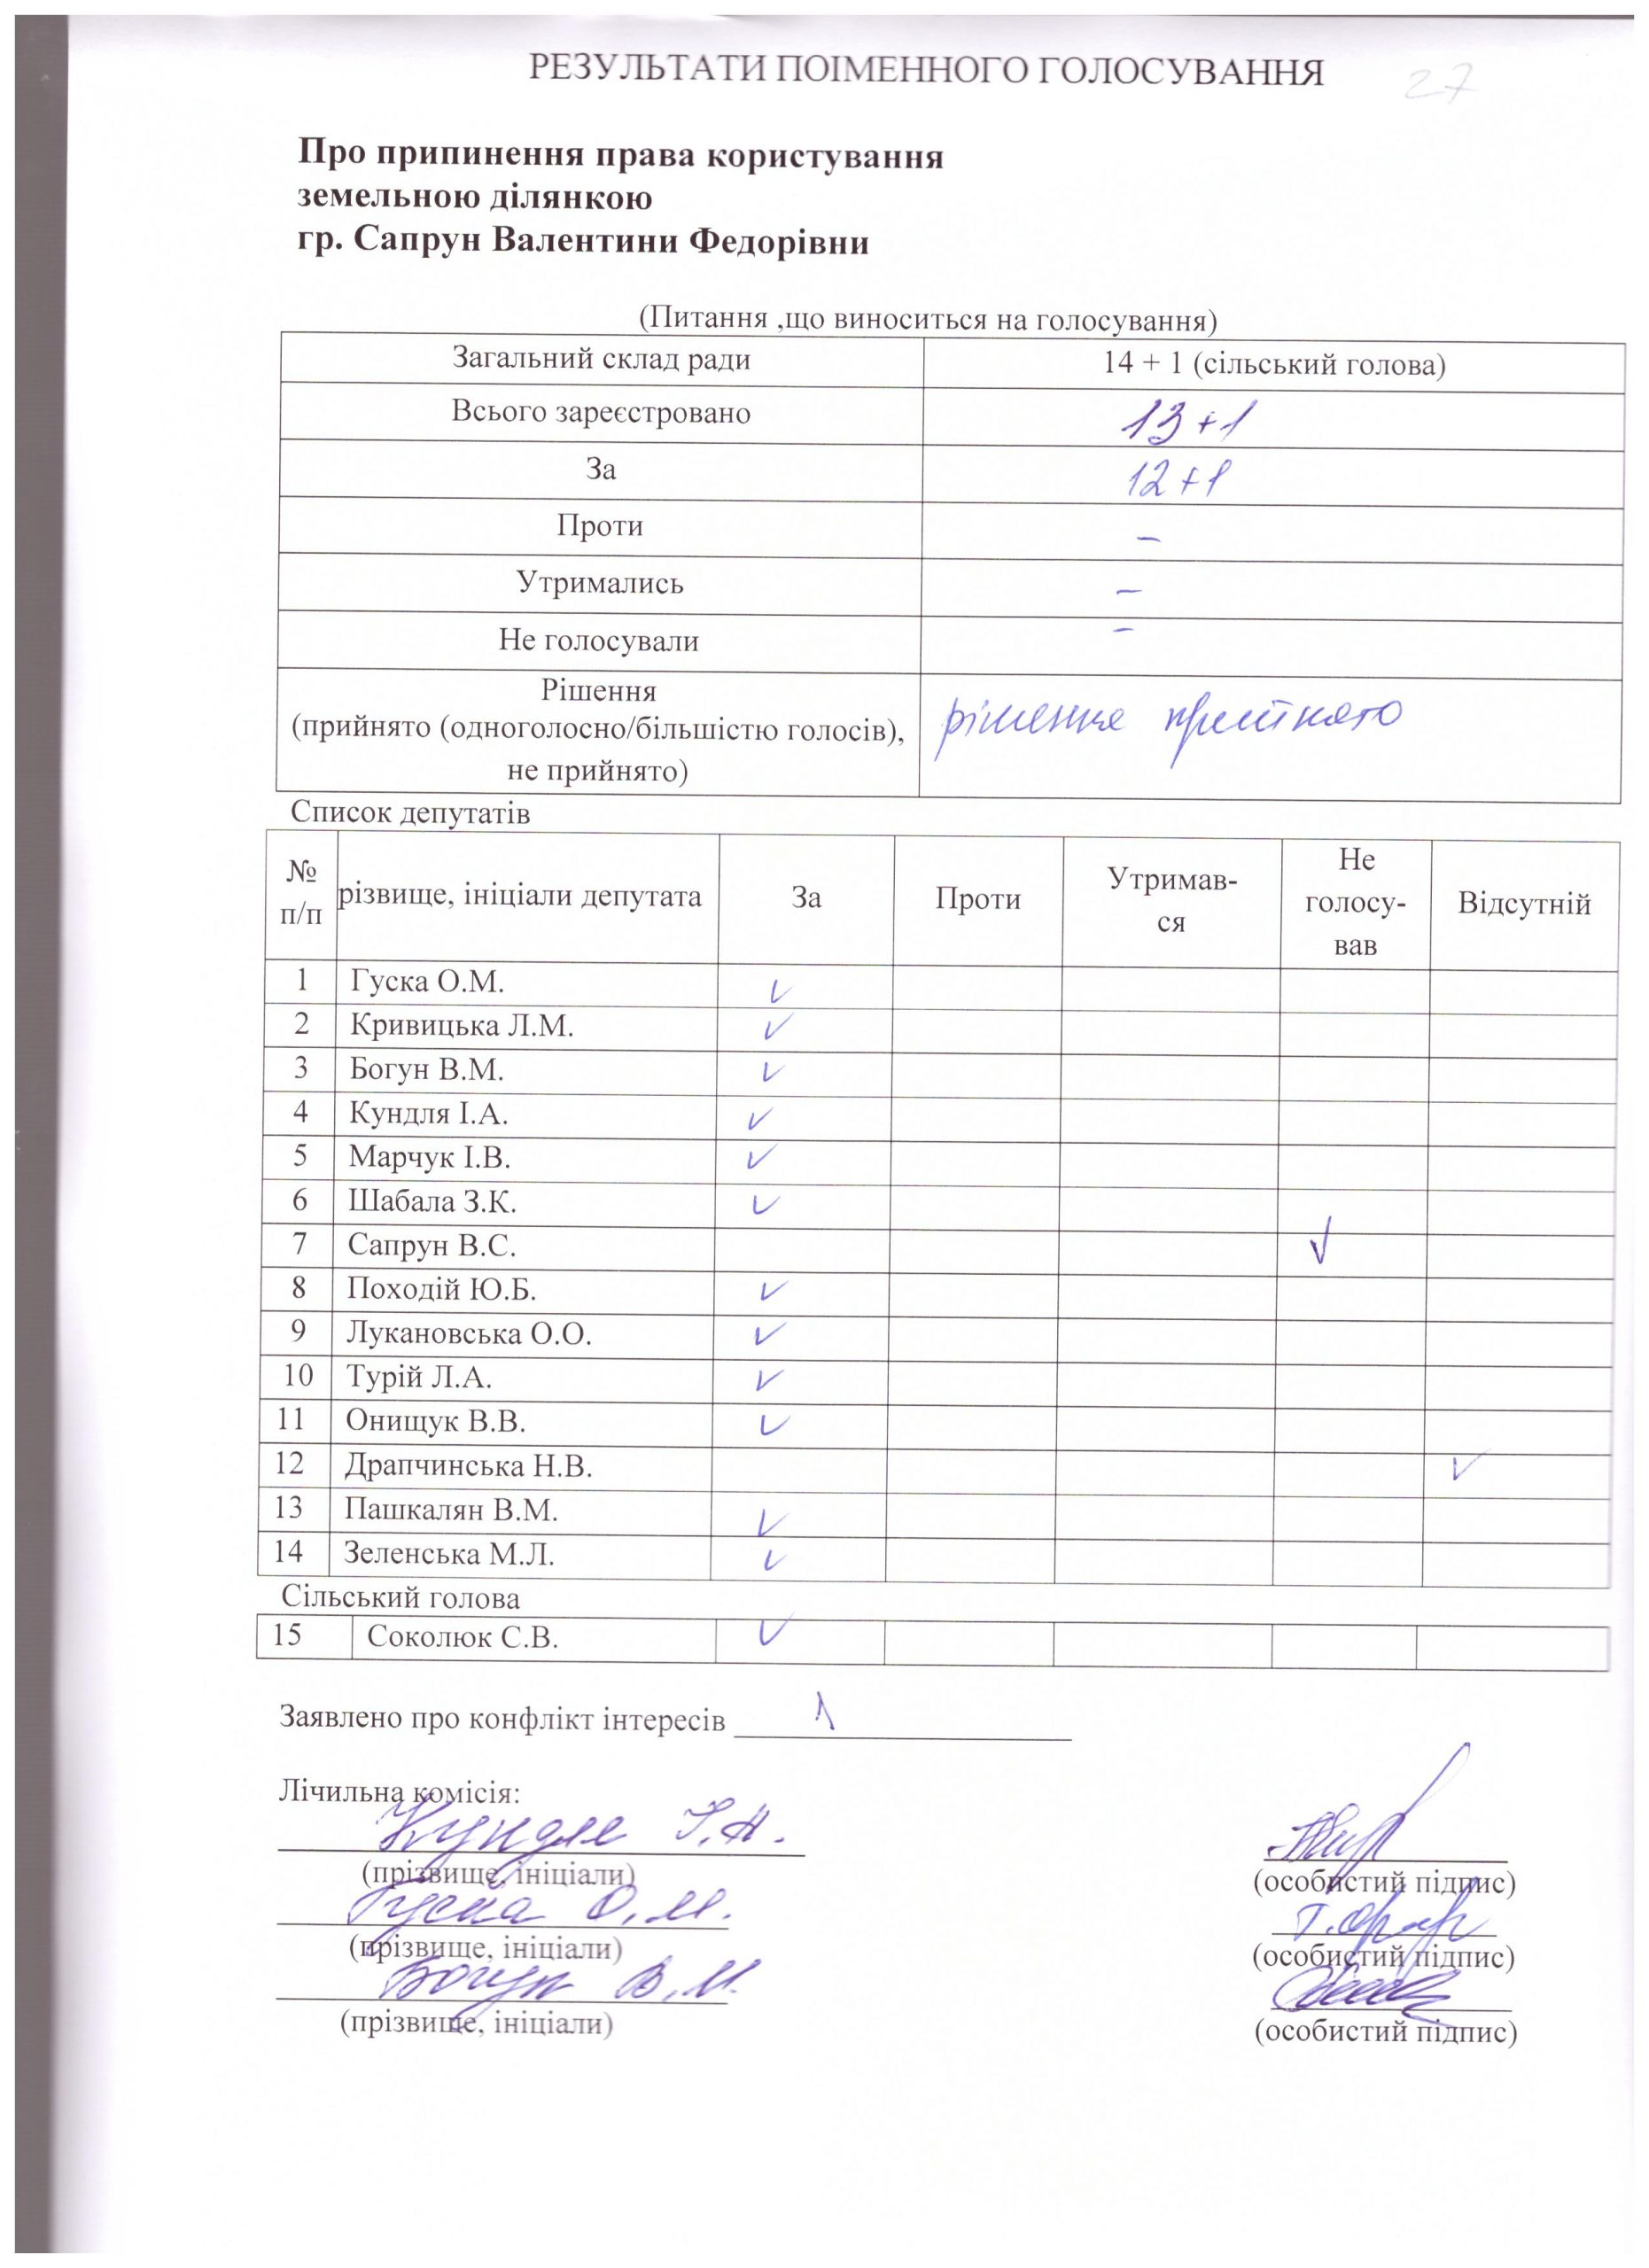 РЕЗУЛЬТАТИ ПОІМЕННОГО ГОЛОСУВАННЯ 27
Про припинення права користування
земельною ділянкою
гр. Сапрун Валентини Федорівни
(Питання ,що виноситься на голосування)
Загальний склад ради 14 + 1 (сільський голова)
Всього зареєстровано 13+1
За 12+1
Проти –
Утримались –
Не голосували –
Рішення
(прийнято (одноголосно/більшістю голосів),
не прийнято) рішення прийнято
Список депутатів
№ п/п різвище, ініціали депутата За Проти Утримав-ся Не голосу-вав Відсутній
1 Гуска О.М. ✓
2 Кривицька Л.М. ✓
3 Богун В.М. ✓
4 Кундля І.А. ✓
5 Марчук І.В. ✓
6 Шабала З.К. ✓
7 Сапрун В.С. ✓
8 Походій Ю.Б. ✓
9 Лукановська О.О. ✓
10 Турій Л.А. ✓
11 Онищук В.В. ✓
12 Драпчинська Н.В. ✓
13 Пашкалян В.М. ✓
14 Зеленська М.Л. ✓
Сільський голова
15 Соколюк С.В. ✓
Заявлено про конфлікт інтересів 1
Лічильна комісія:
Кундля І.А.
(прізвище, ініціали) (особистий підпис)
Гуска О.М.
(прізвище, ініціали) (особистий підпис)
Богун В.М.
(прізвище, ініціали) (особистий підпис)